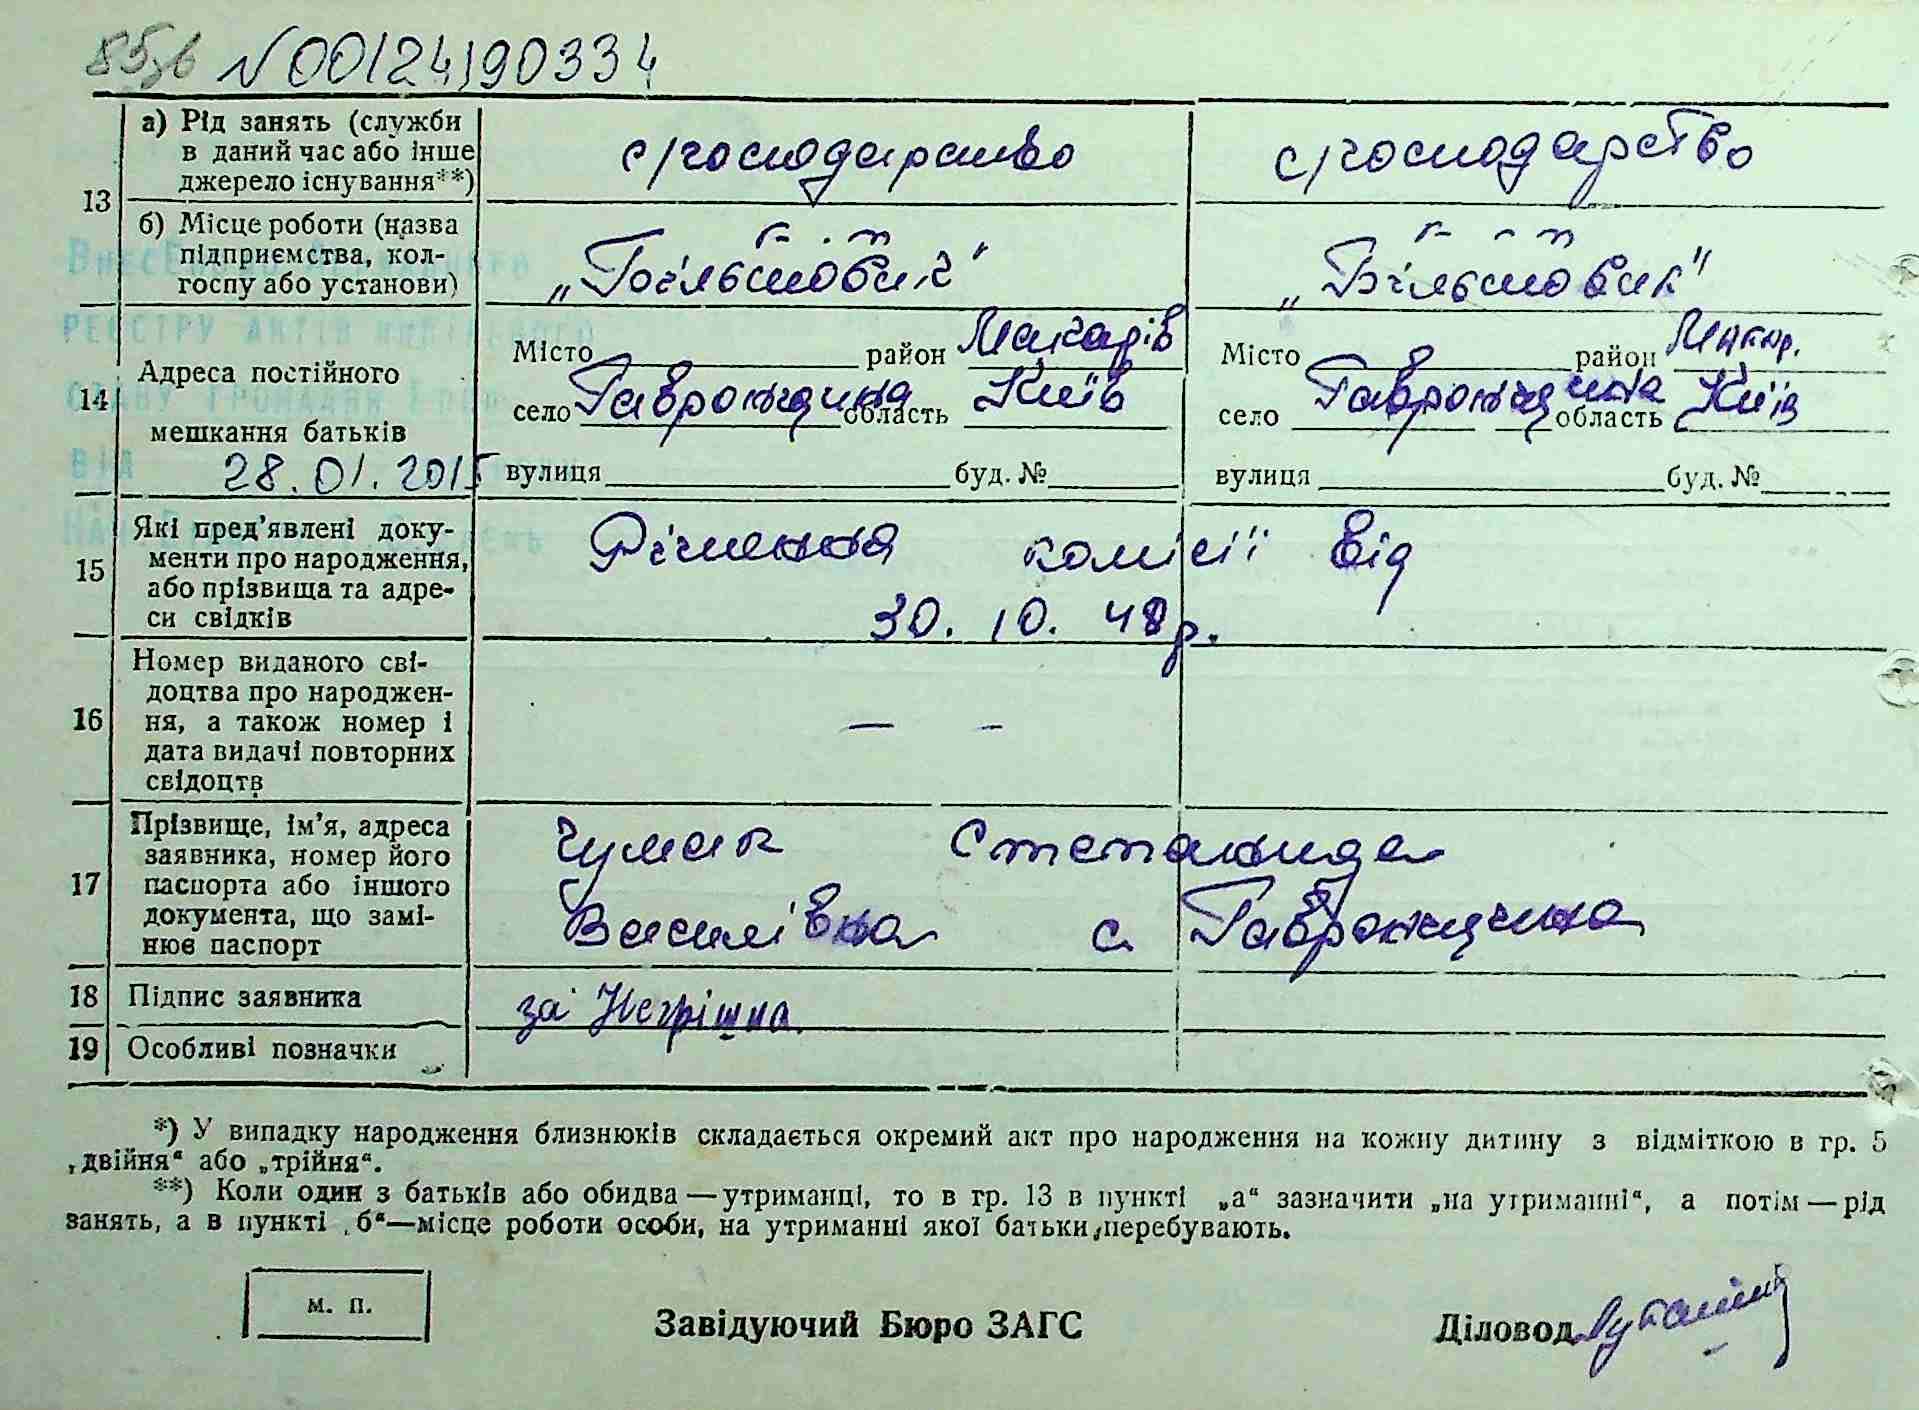 N00124190334
13
а) Рід занять (служби
в даний час або інше
джерело існування**)
с/господарство
с/господарство
б) Місце роботи (назва
підприємства, кол-
госпу або установи)
„Більшовик"
„Більшовик"
Внесено до Державного
реєстру актів цивільного
стану громадян
від
28.01.2015
14
Адреса постійного
мешкання батьків
Місто район Макарів
село Гавронщина область Київ
вулиця буд. №
Місто район Макар.
село Гавронщина область Київ
вулиця буд. №
15
Які пред'явлені доку-
менти про народження,
або прізвища та адре-
си свідків
Рішення комісії від
30. 10. 48 р.
16
Номер виданого сві-
доцтва про народжен-
ня, а також номер і
дата видачі повторних
свідоцтв
— -
17
Прізвище, ім'я, адреса
заявника, номер його
паспорта або іншого
документа, що замі-
нює паспорт
Чумак Степанида
Василівна с. Гавронщина
18
Підпис заявника
за
19
Особливі позначки
*) У випадку народження близнюків складається окремий акт про народження на кожну дитину з відміткою в гр. 5
„двійня“ або „трійня“.
**) Коли один з батьків або обидва — утриманці, то в гр. 13 в пункті „а“ зазначити „на утриманні“, а потім — рід
занять, а в пункті „б“—місце роботи особи, на утриманні якої батьки перебувають.
м. п.
Завідуючий Бюро ЗАГС
Діловод